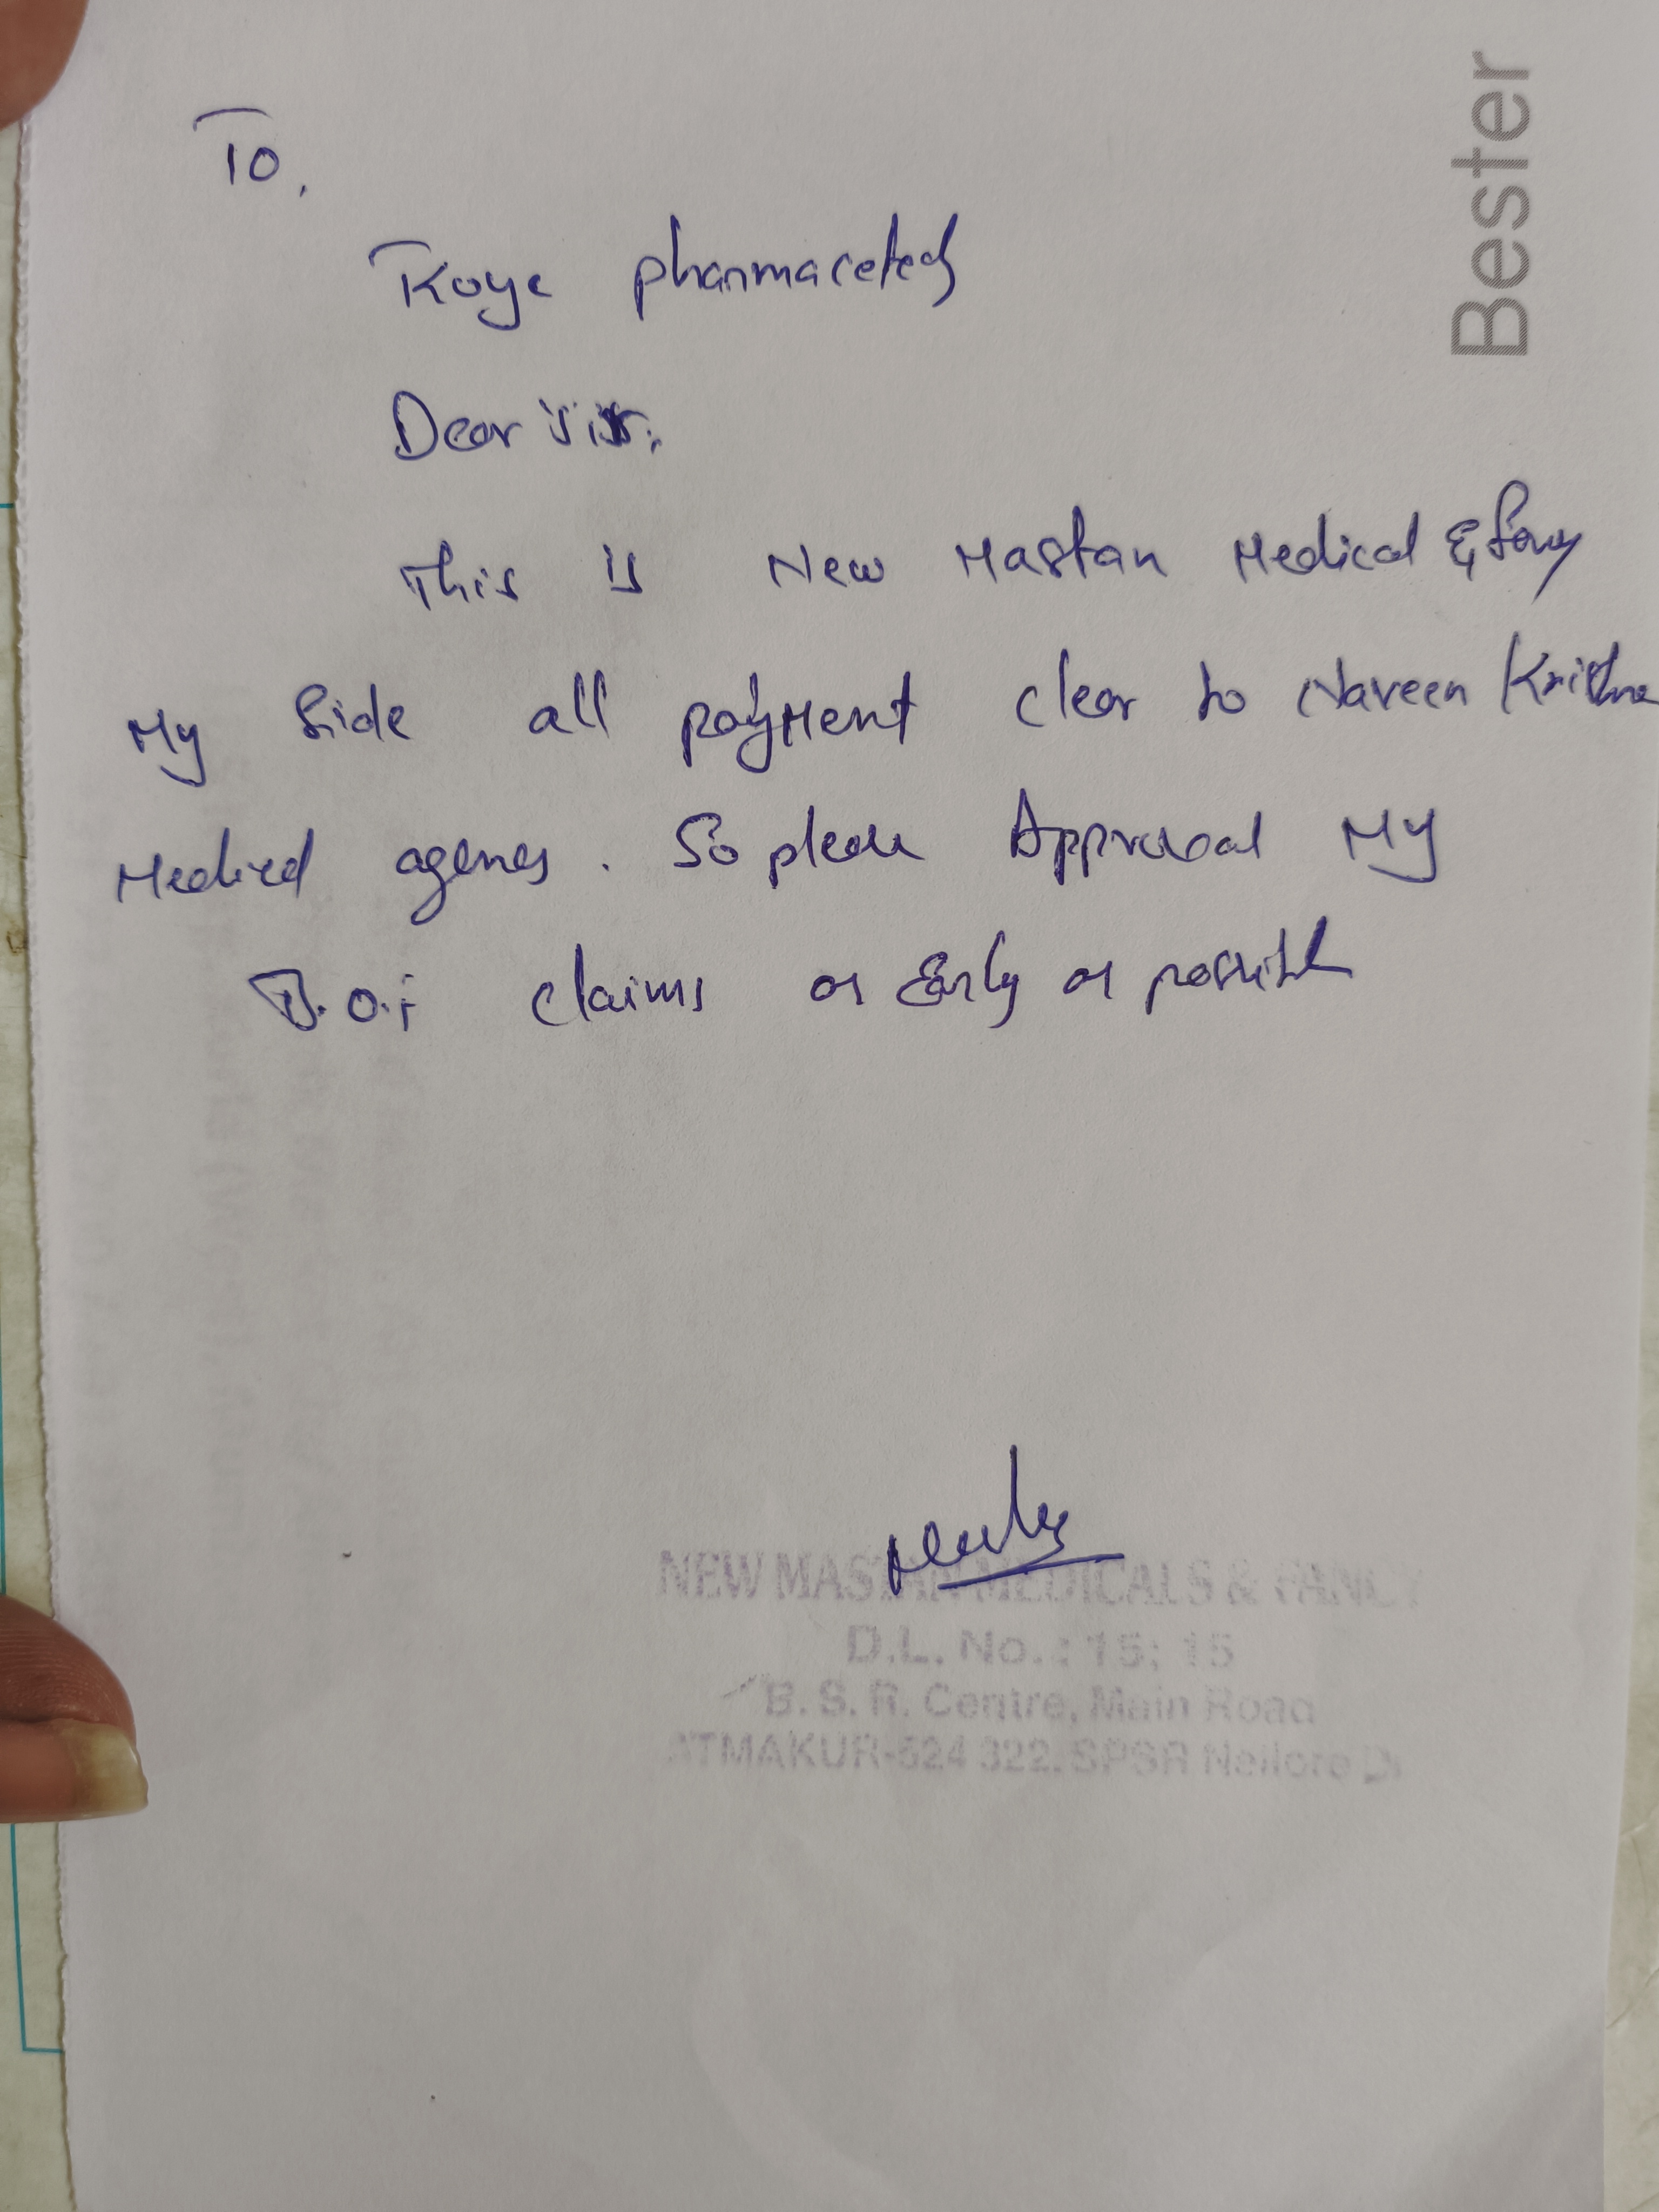 To,
Koye pharmaceteds
Dear Sir,
This is New Mastan Medical & Fancy
My Side all payment clear to Naveen Krishna
Medical agency. So please Approval My
B.O.i claims as Early as possible
NEW MASTAN MEDICALS & FANCY
D.L. No. : 15; 15
B. S. R. Centre, Main Road
ATMAKUR-524 322. SPSR Nellore Dt
Bester